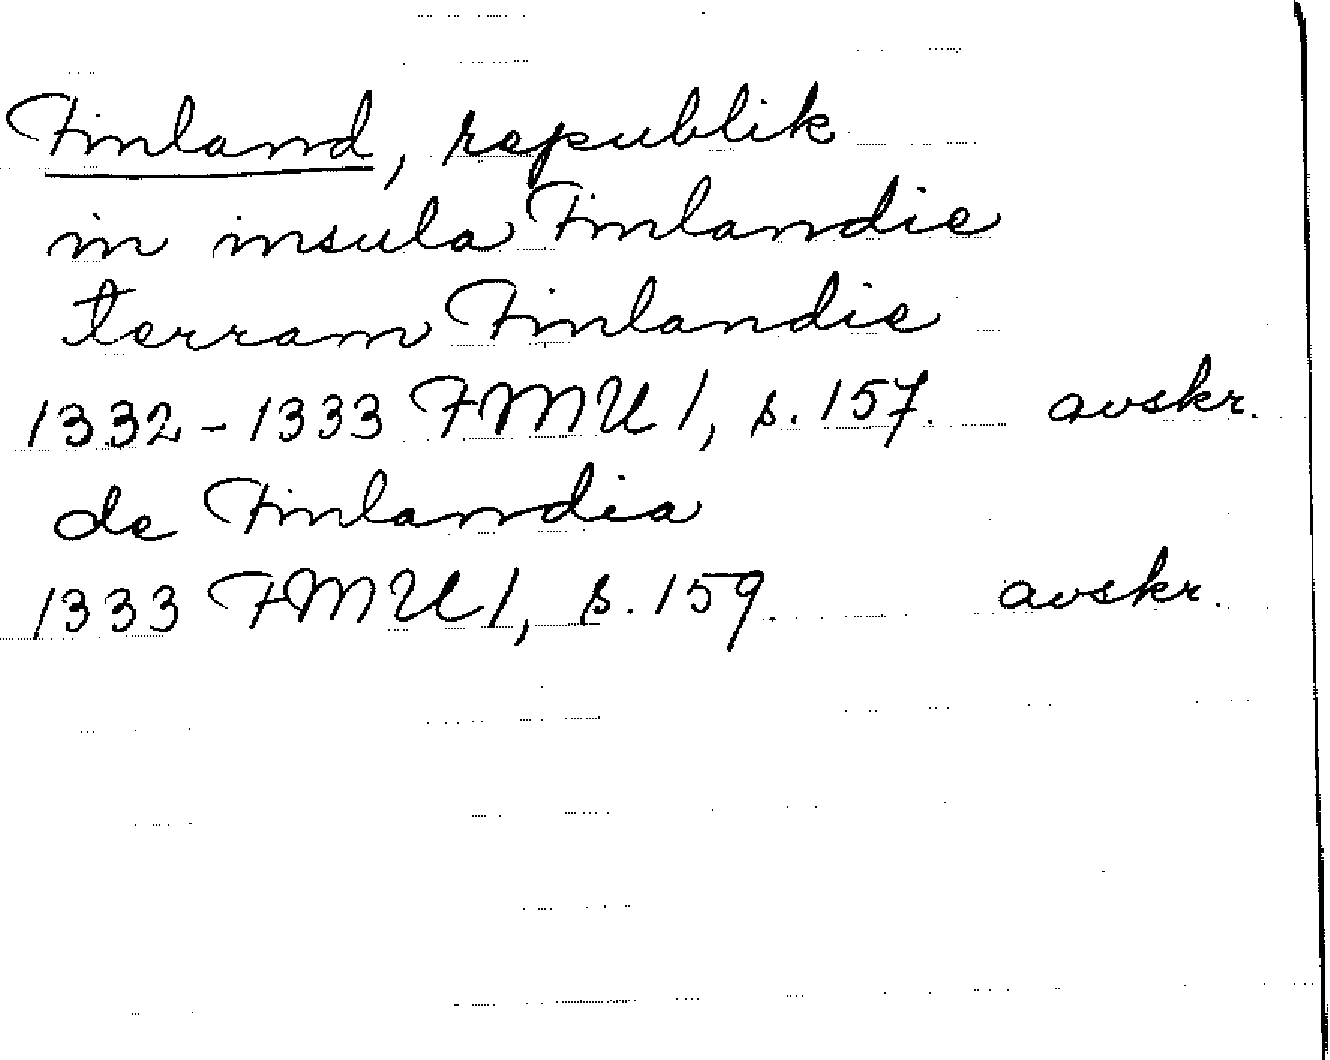 Finland, republik
in insula Finlandie
terram Finlandie
1332-1333 FMU 1, s. 157. avskr.
de Finlandia
1333 FMU 1, s. 159. avskr.